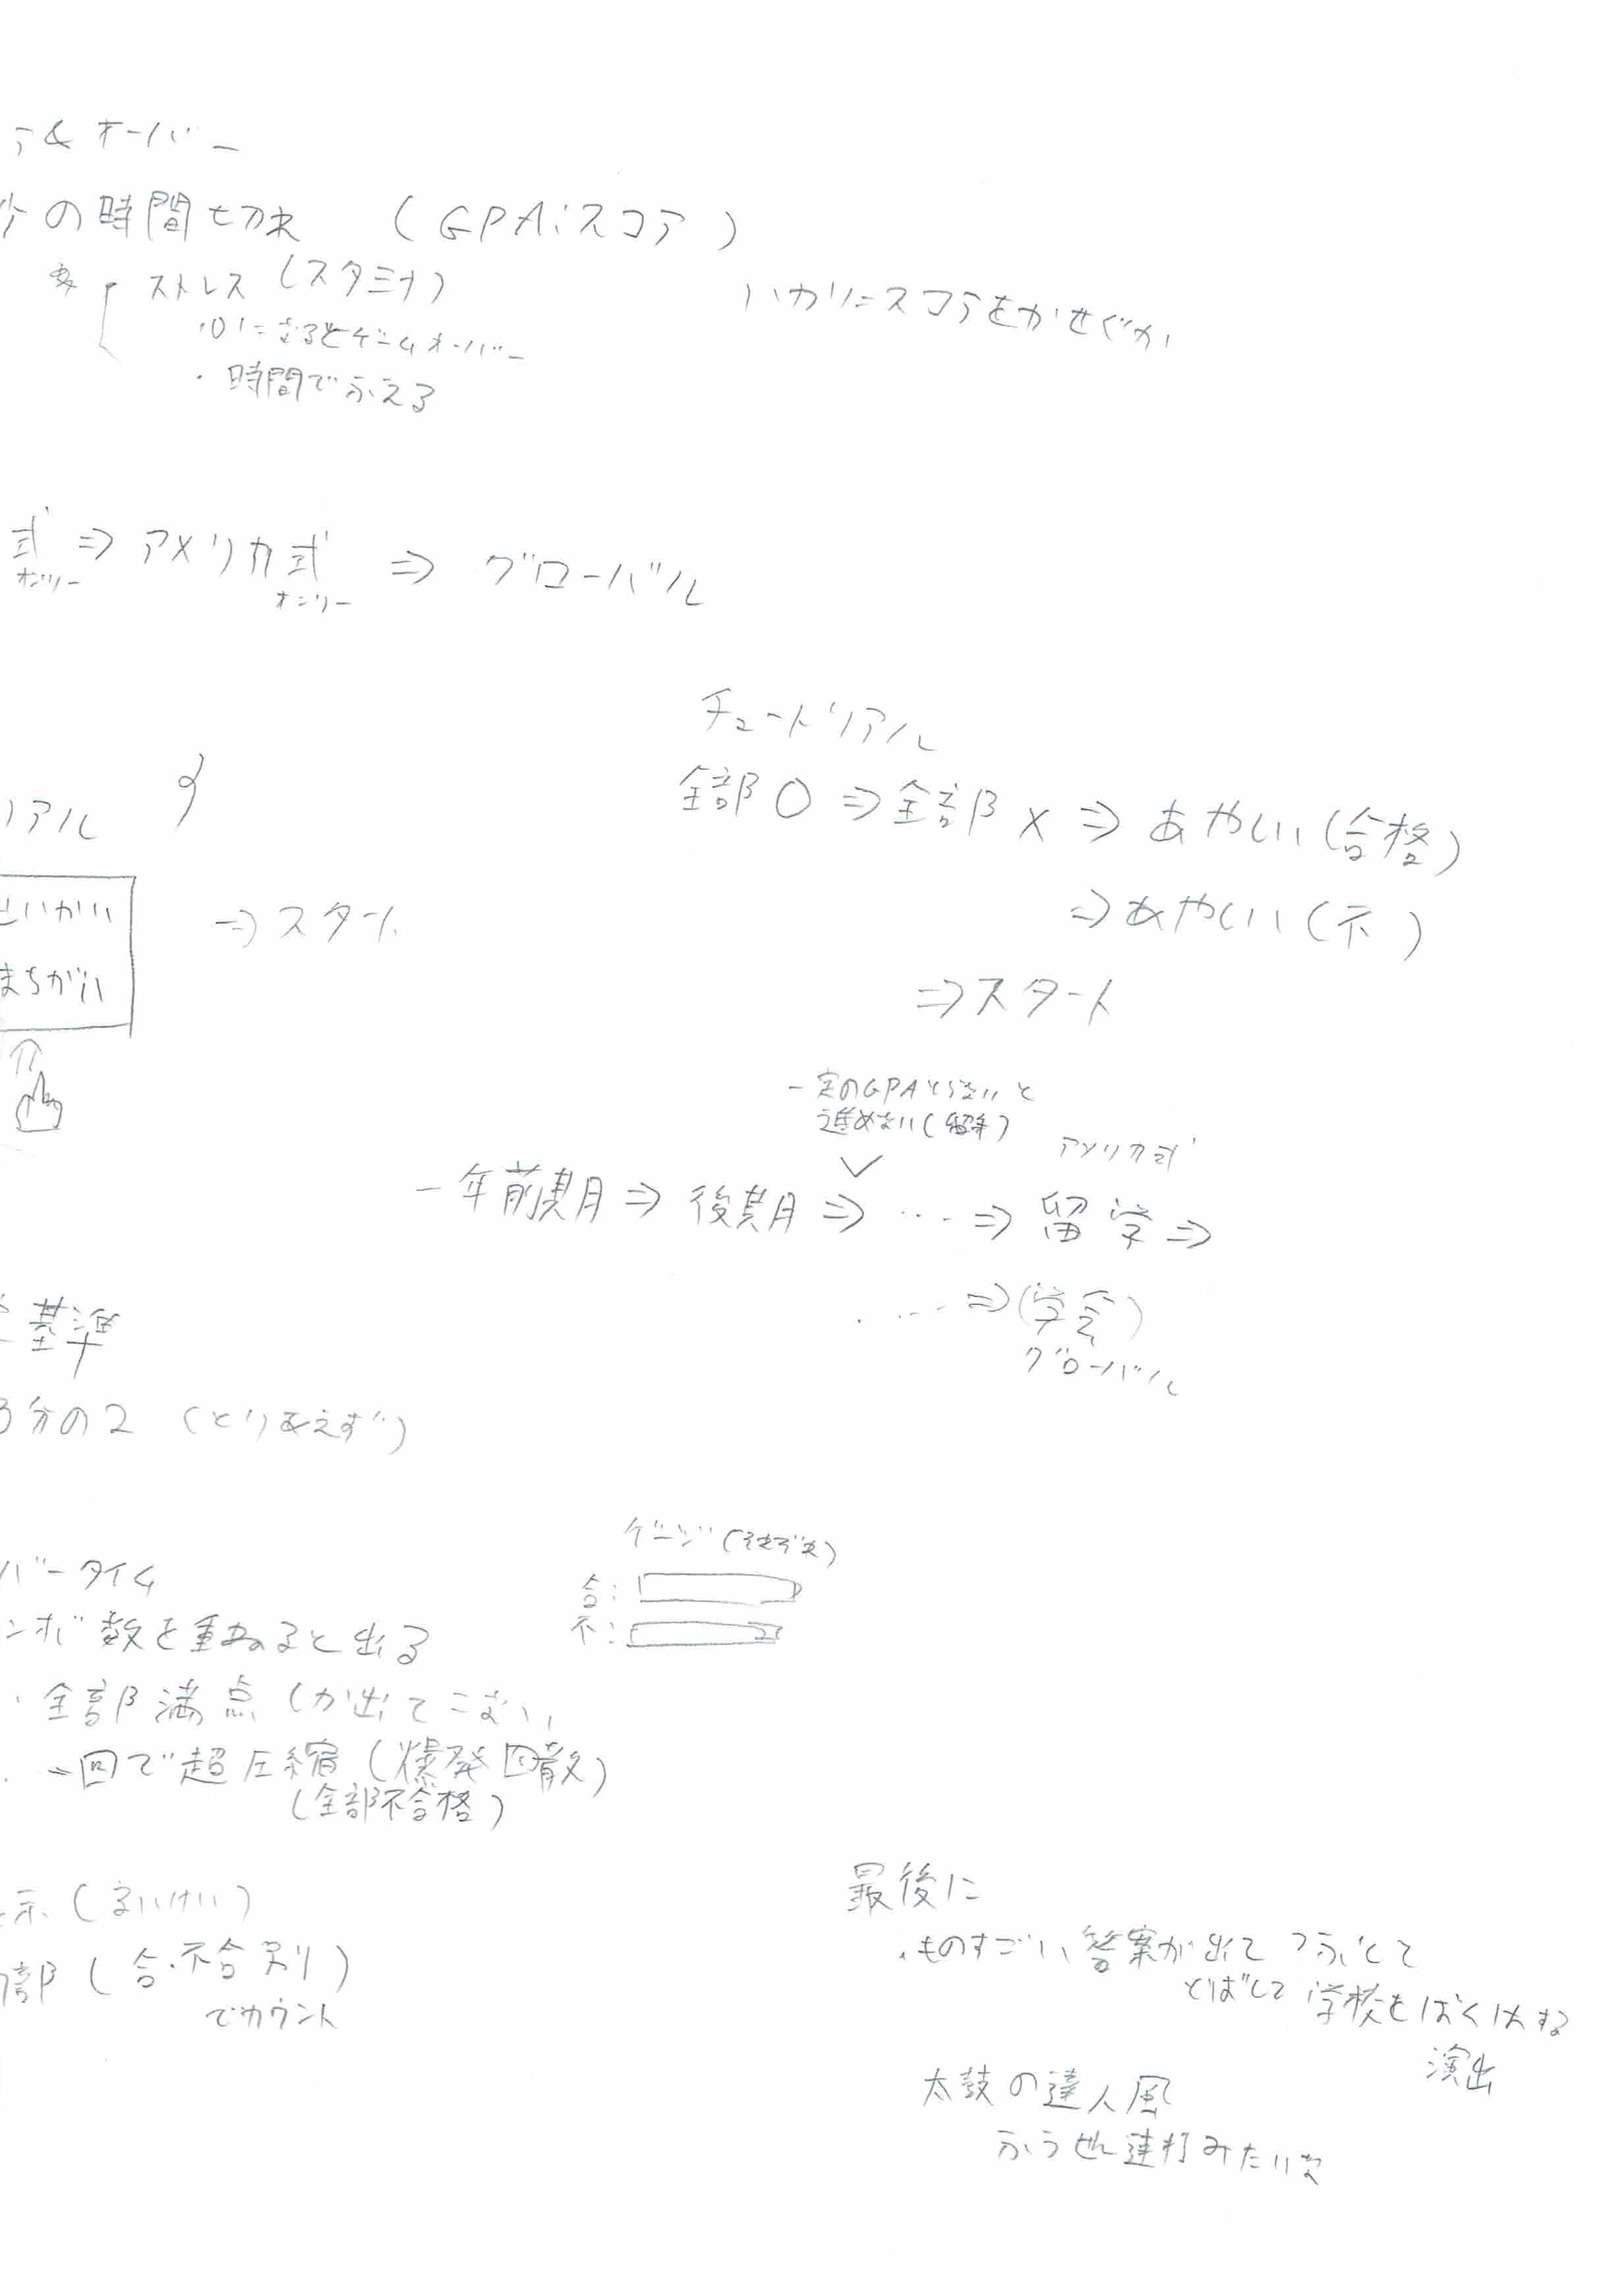 ア&オーバー
の時間切れ （GPA:スコア）
ストレス（スタミナ）
いかにスコアをかせぐか
・0になるとゲームオーバー
・時間でふえる
式 ⇒ アメリカ式 ⇒ グローバル
オンリー オンリー
チュートリアル
全部〇 ⇒ 全部× ⇒ あやしい（合格）
リアル
⇒ あやしい（不）
⇒スタート
まちがい
⇒スタート
一定のGPAとらないと
進めない（留年）
アメリカ式
一年前期 ⇒ 後期 ⇒ … ⇒ 留学 ⇒
… ⇒（学会）
グローバル
基準
3分の2 （とりあえず）
ゲージ
合：
不：
バータイム
ンボ数を重ねると出る
・全部満点しか出てこない
・一回で超圧縮（爆発四散）
（全部不合格）
示（るいけい）
部（合・不合別）
でカウント
最後に
・ものすごい答案が出てつぶして
とばして学校をばくはする
演出
太鼓の達人風
ふうせん連打みたいな